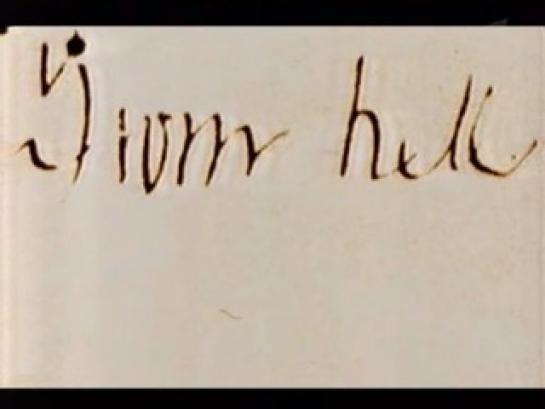 From hell